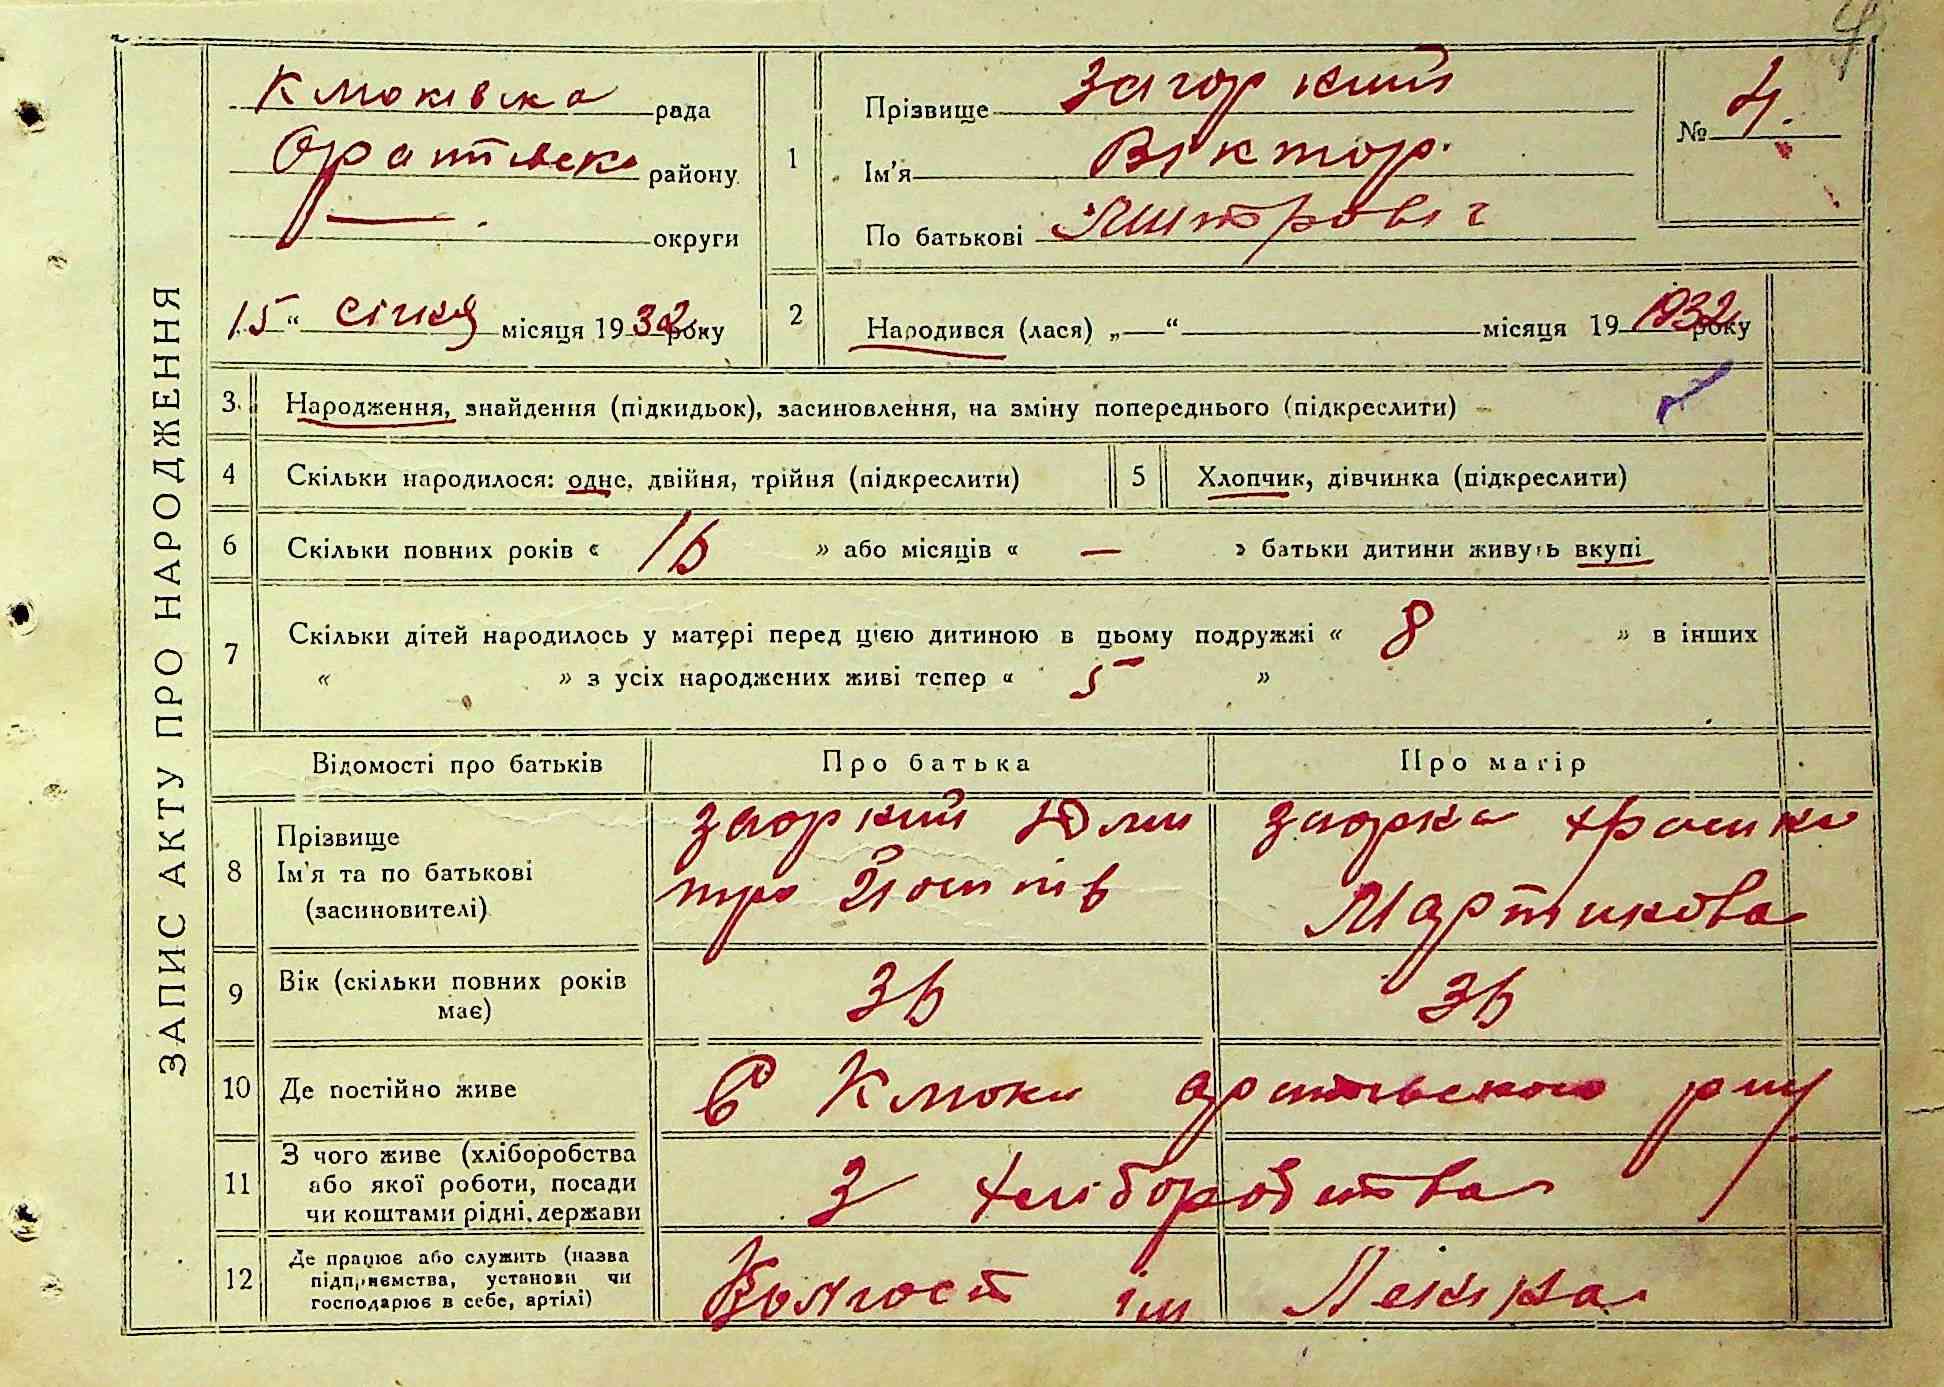 4
ЗАПИС АКТУ ПРО НАРОДЖЕННЯ
Клюківска рада
Оратівск району
— округи
15 „ січня місяця 1932 року
1
Прізвище Загоркий
Ім'я Віктор.
По батькові Дмитровіч
№ 4.
2
Народився (лася) „—“ місяця 19 1932 року
3. Народження, знайдення (підкидьок), засиновлення, на зміну попереднього (підкреслити)
4 Скільки народилося: одне, двійня, трійня (підкреслити)
5 Хлопчик, дівчинка (підкреслити)
6 Скільки повних років « 16 » або місяців « — » батьки дитини живуть вкупі
7 Скільки дітей народилось у матері перед цією дитиною в цьому подружжі « 8 » в інших
« » з усіх народжених живі тепер « 5 »
Відомості про батьків
Про батька
Про матір
8 Прізвище
Ім'я та по батькові
(засиновителі)
Заоркий Дми
тро Йосипів
Заорка
Мартинова
9 Вік (скільки повних років
має)
36
36
10 Де постійно живе
в Клюки оратовського р-ну
11 З чого живе (хліборобства
або якої роботи, посади
чи коштами рідні, держави
З хліборобства
12 Де працює або служить (назва
підприємства, установи чи
господарює в себе, артілі)
Колгосп ім Леніна